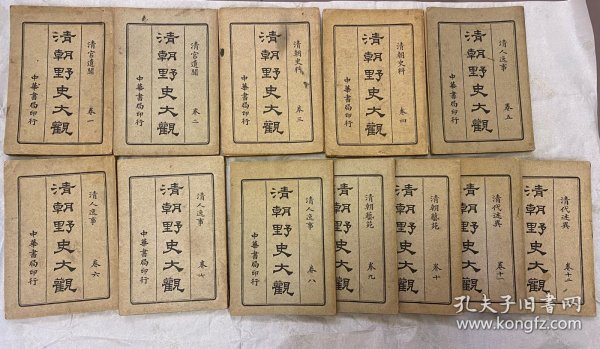 清宮遺聞
清朝野史大觀
卷一
中華書局印行
清宮遺聞
清朝野史大觀
卷二
中華書局印行
清朝史料
清朝野史大觀
卷三
中華書局印行
清朝史料
清朝野史大觀
卷四
中華書局印行
清人逸事
清朝野史大觀
卷五
中華書局印行
清人逸事
清朝野史大觀
卷六
中華書局印行
清人逸事
清朝野史大觀
卷七
中華書局印行
清人逸事
清朝野史大觀
卷八
中華書局印行
清朝藝苑
清朝野史大觀
卷九
清朝藝苑
清朝野史大觀
卷十
清代述異
清朝野史大觀
卷十一
清代述異
清朝野史大觀
卷十二
孔夫子旧书网
www.kongfz.com